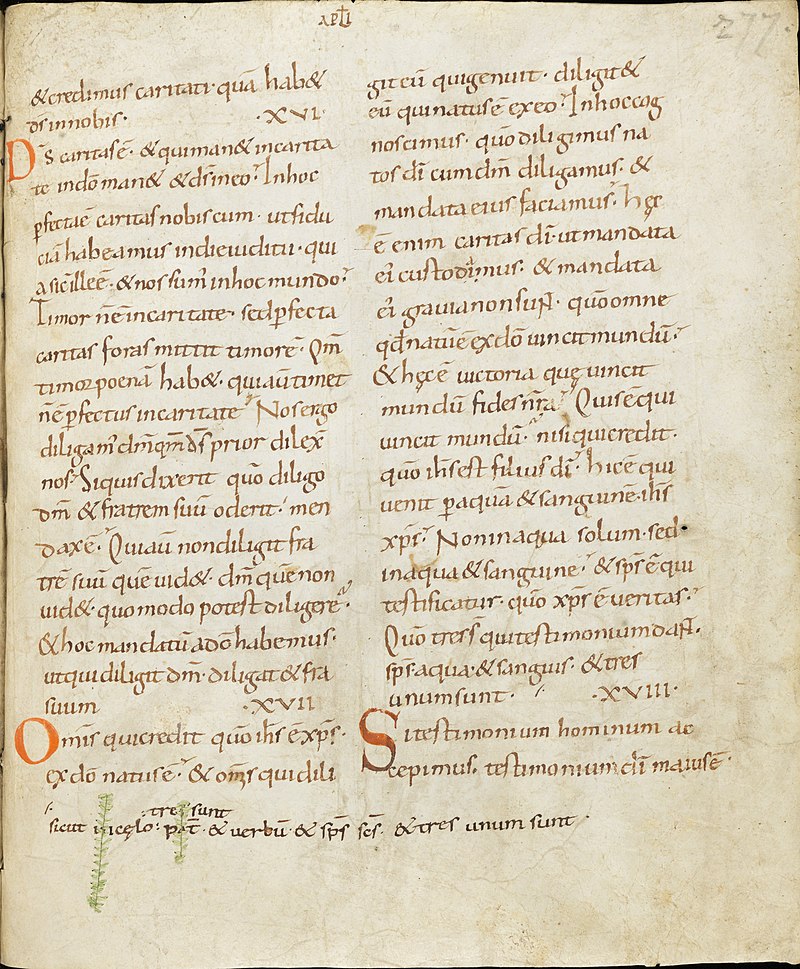 APŁI
277.
&credimus caritati· quā hab&
dsinnobis· ·XVI·
D̄s caritasē· & quiman& incarita
te indō man& & ds̄ ineo· Inhoc
perfectaē caritas nobiscum· utfidu
ciā habeamus indieiudicii· qui
a sicilleē· & nos sum' inhoc mundo·
Timor n̄ē incaritate· sed perfecta
caritas foras mittit timorē· Qm̄
timor poenā hab&· qui aū timet
n̄ē perfectus incaritate· Nos ergo
diligam' dm̄ qm̄ ds̄ prior dilex̄
nos· Siquis dixerit quō diligo
dm̄ & fratrem suū oderit· men
daxē· Qui aū nondiligit fra
trē suū quē uid&· dm̄ quē non
uid&· quomodo potest diligere·
& hoc mandatū adō habemus·
ut qui diligit dm̄· diligat & fra
suum ·XVII·
Omīs qui credit quō ih̄s ē xp̄s·
exdō natusē· & om̄s qui dili
git eū qui genuit· diligit &
eū qui natus ē exeo· Inhoc cog
noscimus· quō diligimus na
tos dī cum dm̄ diligamus· &
mandata eius faciamus· hęc
ē enim caritas dī· ut mandata
ei' custodiimus· & mandata
ei' grauia non sunt· quō omne
qd̄ natū ē exdō uincit mundū·
& hęc ē uictoria quę uincit
mundū fides nr̄a· Quis ē qui
uincit mundū· nisi qui credit·
quō ih̄s est filius dī· hic ē qui
uenit p aquā & sanguinē· ih̄s
xp̄s· Non inaqua solum· sed
inaqua & sanguine· & sp̄s ē qui
testificatur· quō xp̄s ē ueritas·
Quō tres s̄ qui testimonium dant·
sp̄s aqua· & sanguis· & tres
unum sunt· ·XVIII·
Si testimonium hominum ac
cepimus· testimonium dī maius ē·
tres sunt
sicut incęlo· pat̄· & uerbū· & sp̄s sc̄s· & tres unum sunt·